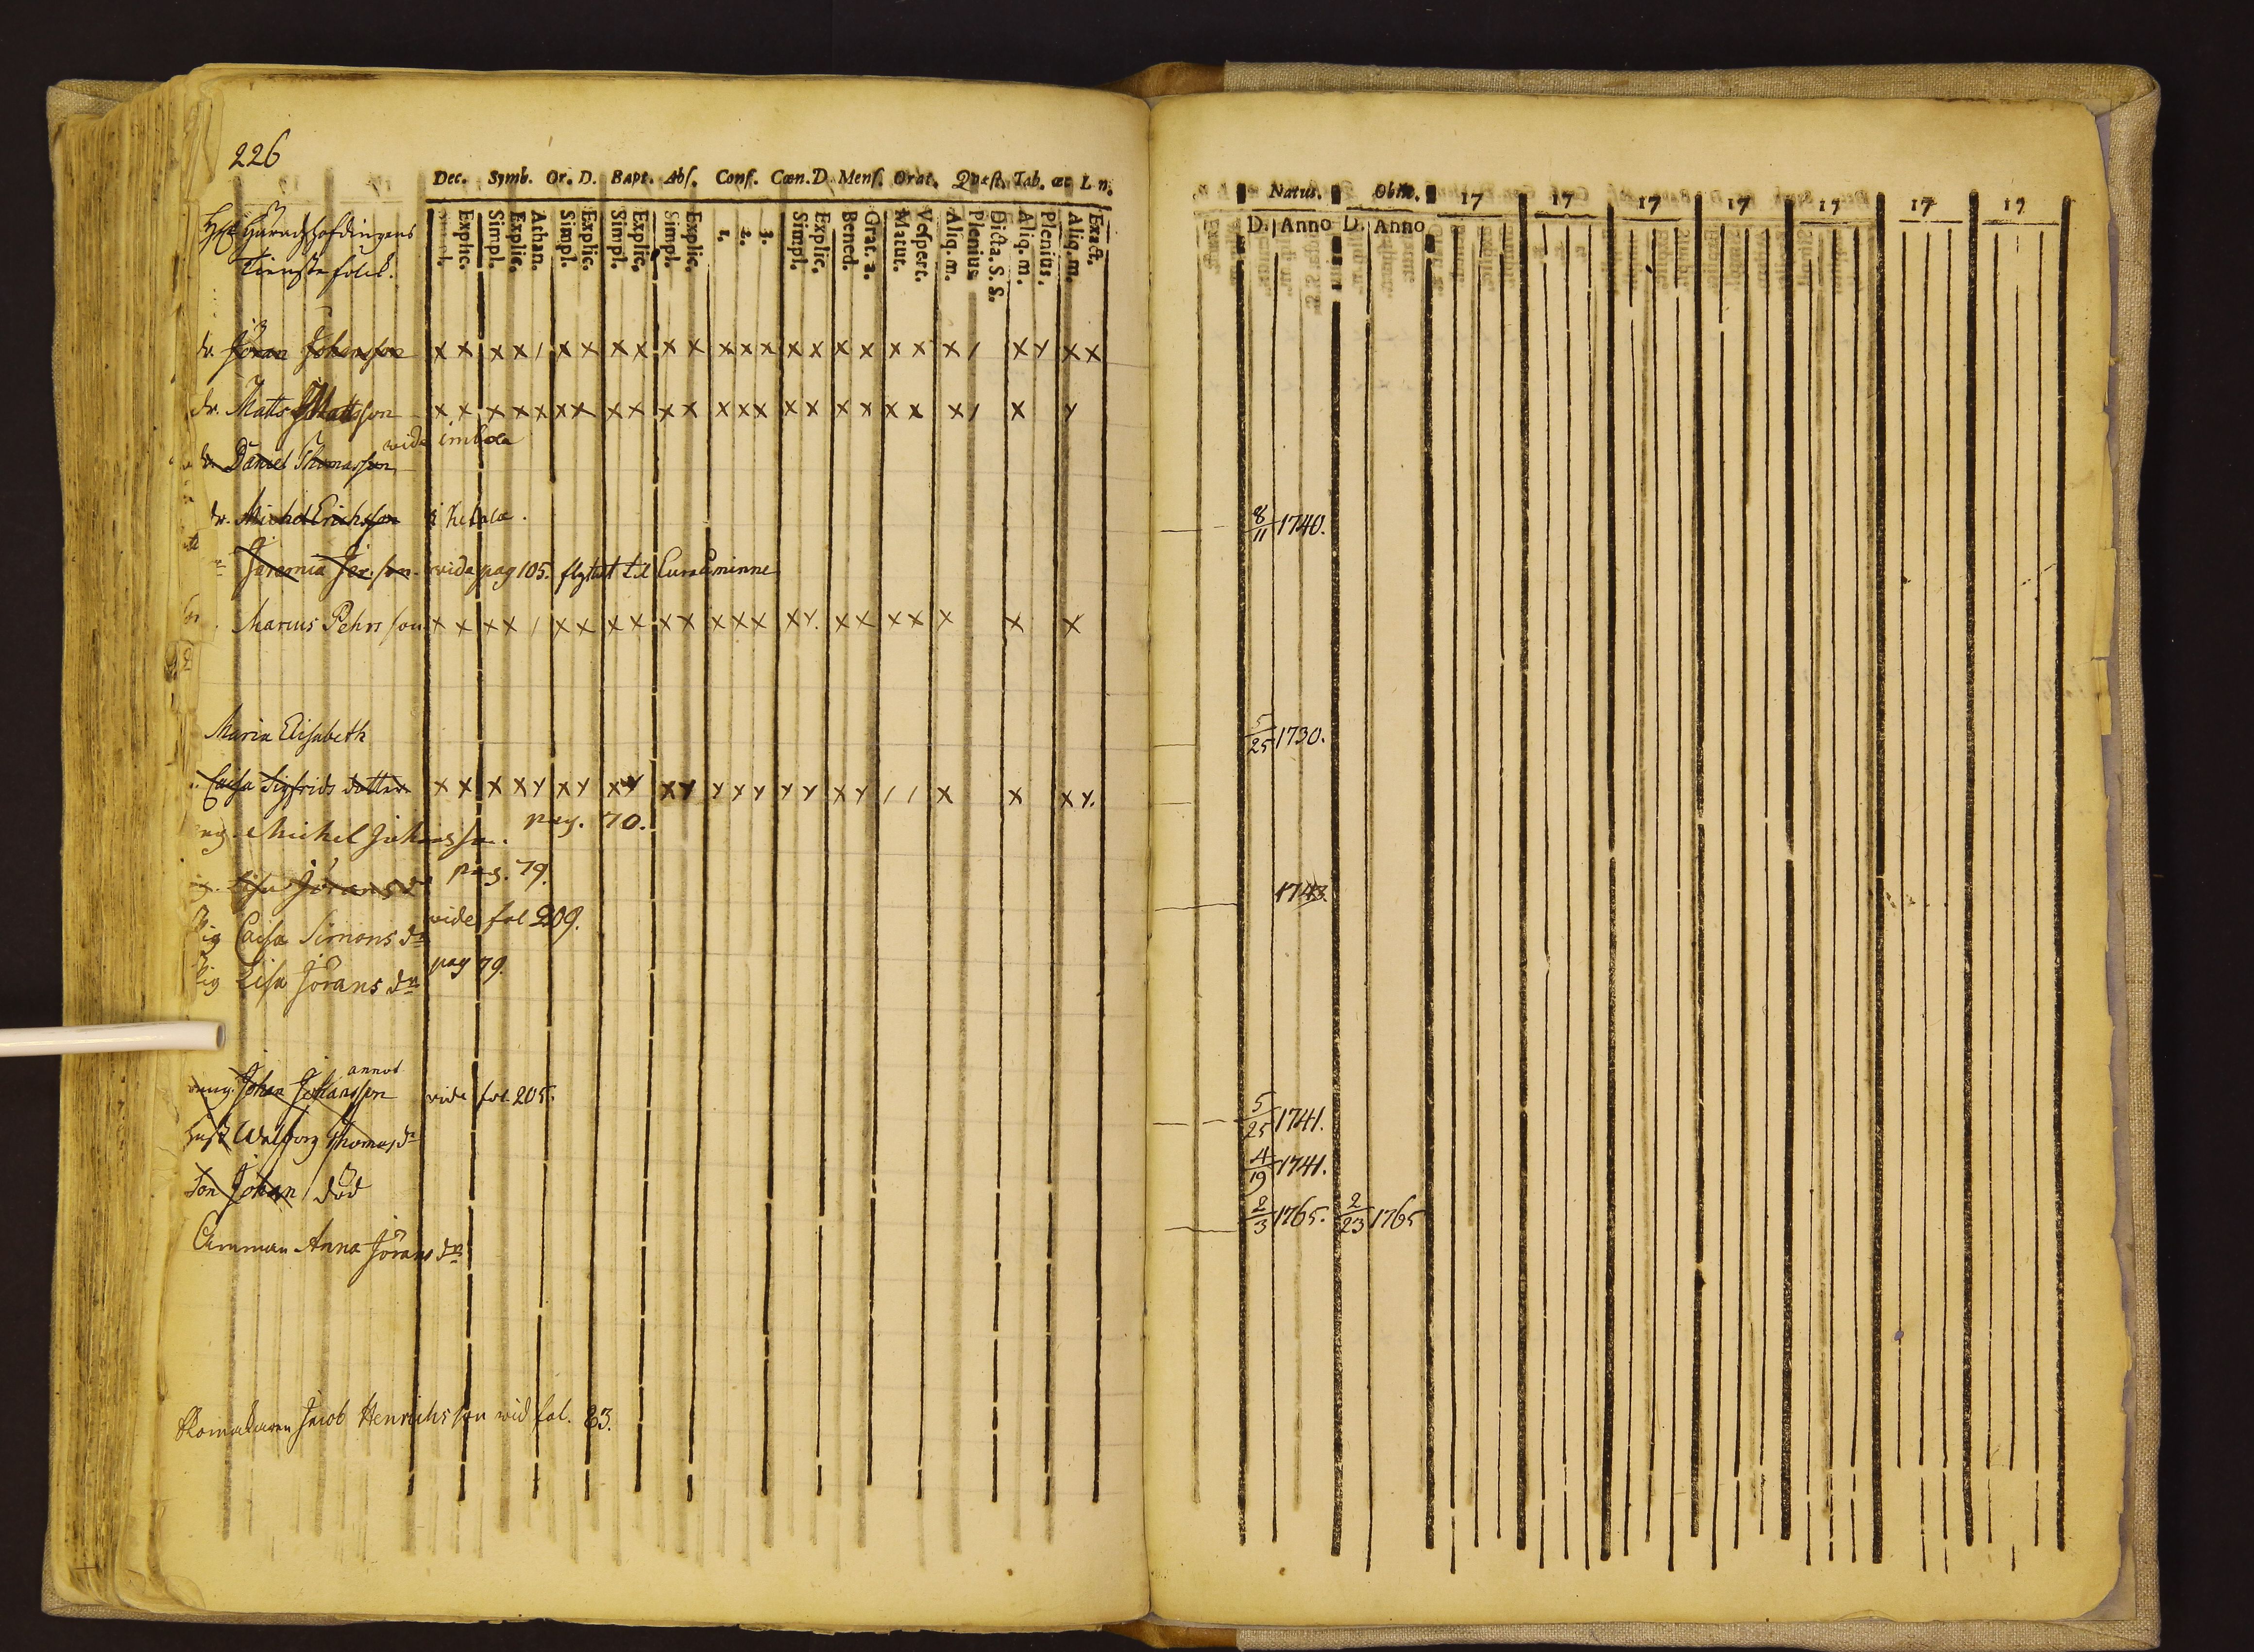 226
Dec. Symb. Or. D. Bapt. Abs. Conf. Cœn. D. Mens. Orat. Quæst. Tab. œc L n.
Simpl. Explic. Simpl. Explic. Athan. Simpl. Explic. Simpl. Explic. Simpl. Explic. 1. 2. 3. Simpl. Explic. Bened. Grat. a. Matut. Vespert. Aliq. m. Plenius. Dicta. S. S. Aliq. m. Plenius. Aliq. m. Exact.
Häradzhöfdingens
Tienstefolck.
dr. Jöran Johansson x x x x / x x x x x x x x x x x x x x x x / x y x x
dr. Matts Mattsson x x x x x x x x x x x x x x x x x x x x x / x y
dr. Daniel Thomasson
dr. Michel Erichsson
Jeremia Jer. son. vide pag 105. flyttat til Euraåminne
Marcus Pehrsson x x x x / x x x x x x x x x x y. x x x x x x x
Maria Elisabeth
Caisa Sigfrids dotter x x x x y x y x y x y y y y y y x y / / x x x y.
Michel Johansson. pag. 70.
Lisa Jörans dr pag. 79.
Pig Caisa Simons dr vide fol 209.
Pig Lisa Jörans dr pag 79.
annot
Johan Johansson vide fol. 205.
Walborg Thomas dr
Son Johan död
Amman Anna Jörans dr
Skomakaren Jacob Henrichsson wid fol. 83.
Natus. Obiit. 17 17 17 17 17 17 17
D. Anno D. Anno
8/11 1740.
5/25 1730.
1743.
5/25 1741.
4/19 1741.
2/3 1765. 2/23 1765